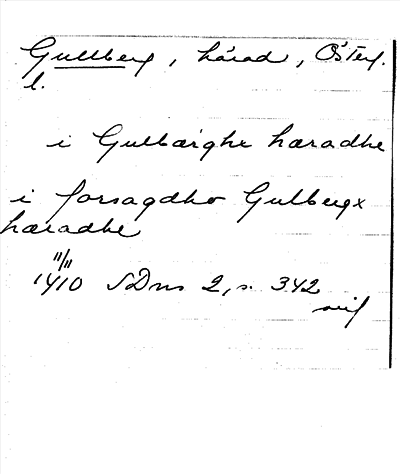 Gullberg, härad, Österg.
l.
i Gulbærghx hæradhe
i forsagdho Gulbergx
hæradhe
11/11
1410 SDns 2, s. 342